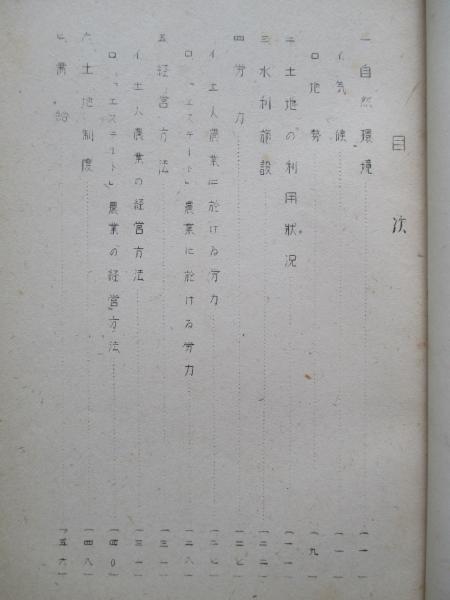 目次
一 自然環境 (一)
イ、気候 (一)
ロ 地勢 (九)
二 土地の利用狀況 (一一)
三 水利施設 (二二)
四 労力 (二七)
イ 土人農業に於ける労力 (二七)
ロ 「エステート」農業に於ける労力 (二八)
五 経営方法 (三一)
イ 土人農業の経営方法 (三一)
ロ 「エステート」農業の経営方法 (四〇)
六 土地制度 (四八)
七 需給 (五六)